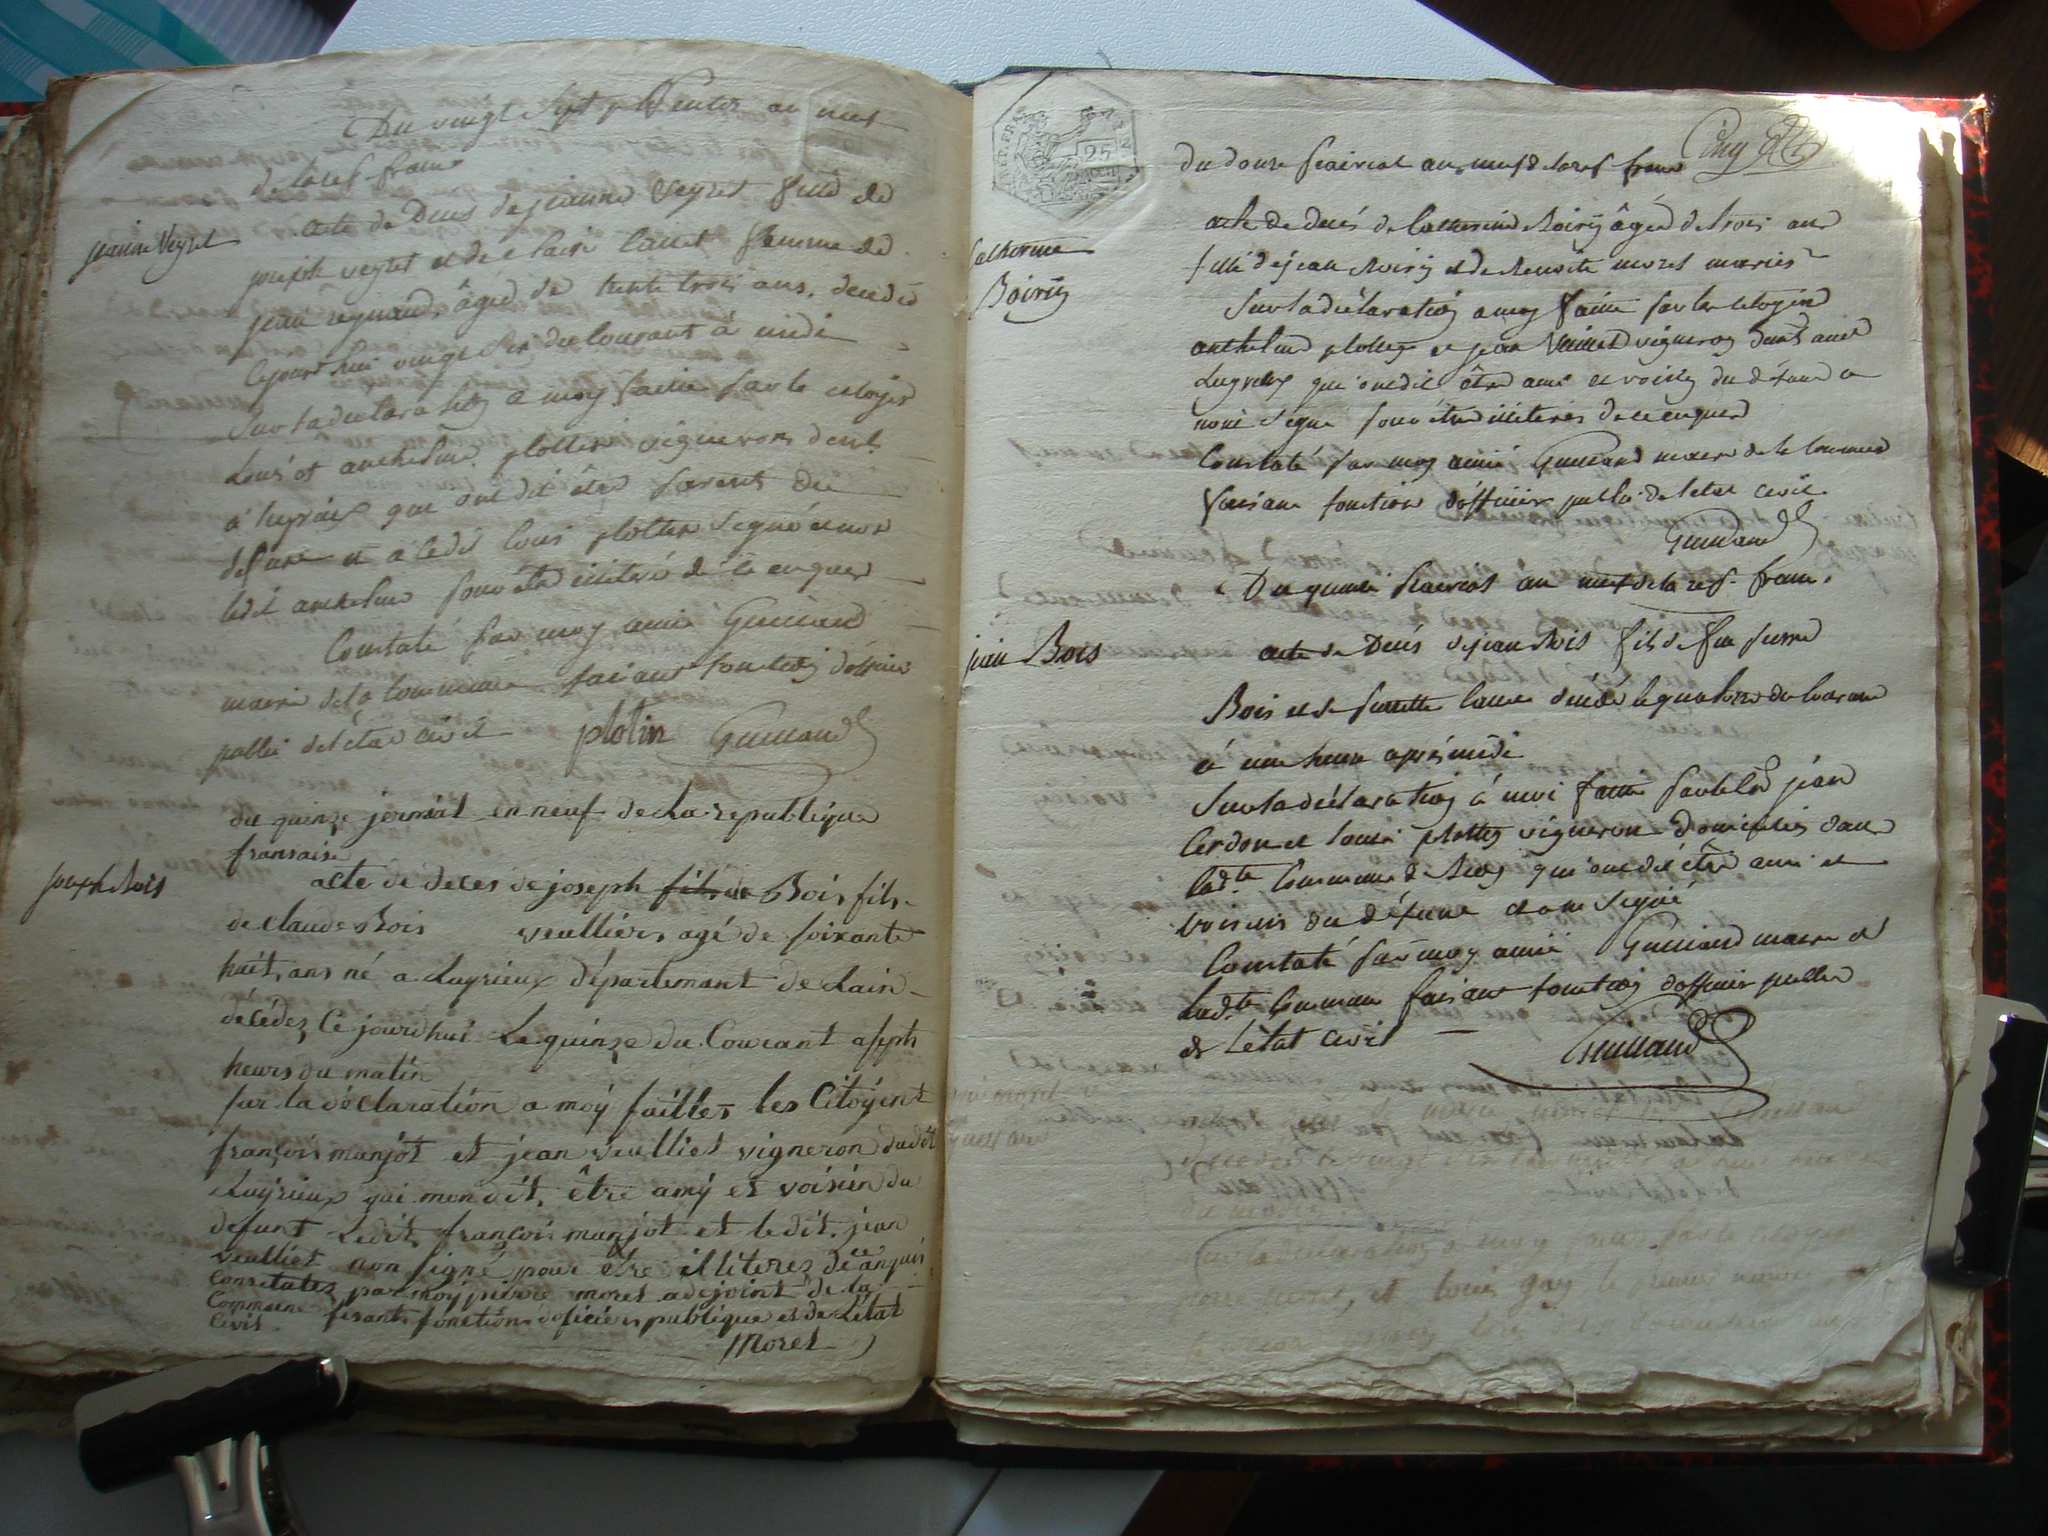 Du vingt Sept pluviose an neuf
de la rep. franc
Jeanne Veyret
acte de Deces de jeanne Veyret fille de
joseph veyret et de claire Cattet femme de
jean reynaud, âgée de trente trois ans, decedée
cejourd'hui vingt six du Courant à midi
Sur la declaration a moy faitte par le citoyen
Louis et anthelme plottin vignerons dem.t
a luyrieux qui ont dit être parents du
defunt et a ledit Louis plottin Signé et non
ledit anthelme pour être illiteré de ce enquer
Constaté par moy aimé Guilland
maire de la Commune faisant fonction d'officier
public de l'état civil plotin Guilland
du quinze jerminal en neuf de la republique
fransaise
joseph Bois
acte de deces de joseph fils de Bois fils
de claude Bois veulliers agé de soixante
huit ans né a Luyrieux département de Lain
décédez Ce jourdhui Le quinze du Courant asseph
heurs du matin
sur la déclaration a moÿ faittes les Citoÿent
françois manjot et jean veulliet vigneron dudit
Luÿrieux qui mon dit, être amÿ et voisien du
defunt Ledit françois manjot et ledit jean
veulliet non signé pour être illiterez de ce anquis
Constatez par moÿ pierre moret adejoint de la
Commune fesant fonction oficier publique et de Létat
Civil
Moret
Cinq
25
du douze floreal an neuf de la rep. franc
Catherine
Boiriy
acte de decés de Catherine Boiriy âgée de trois ans
fille de jean Boiriy et de Benoite moret mariés
Sur la déclaration a moy faitte par les citoyens
anthelme plottin et jean vigneron dem.t audt
Luyrieux qui ont dit être ami et voisin du défunt et
non Signé pour être illiterés de ce enquer
Constaté par moy aimé Guilland maire de la Commune
faisant fonction d'officier public de l'etat civil
Guilland
Du quinze floreal an neuf de la rep. franc.
jean Bois
acte de Decés de jean Bois fils de feu pierre
Bois et de pierrette decédé le quatorze du Courant
à une heure après midi
Sur la déclaration à moi faitte par les Cns jean
Cerdon et Louis plottin vigneron domiciliés dans
lad.te Commune de qui ont dit être ami et
voisins du défunt et ont Signé
Constaté par moy aimé Guilland maire de
Lad.te Commune faisant fonction d'officier public
de L'état civil
Guilland